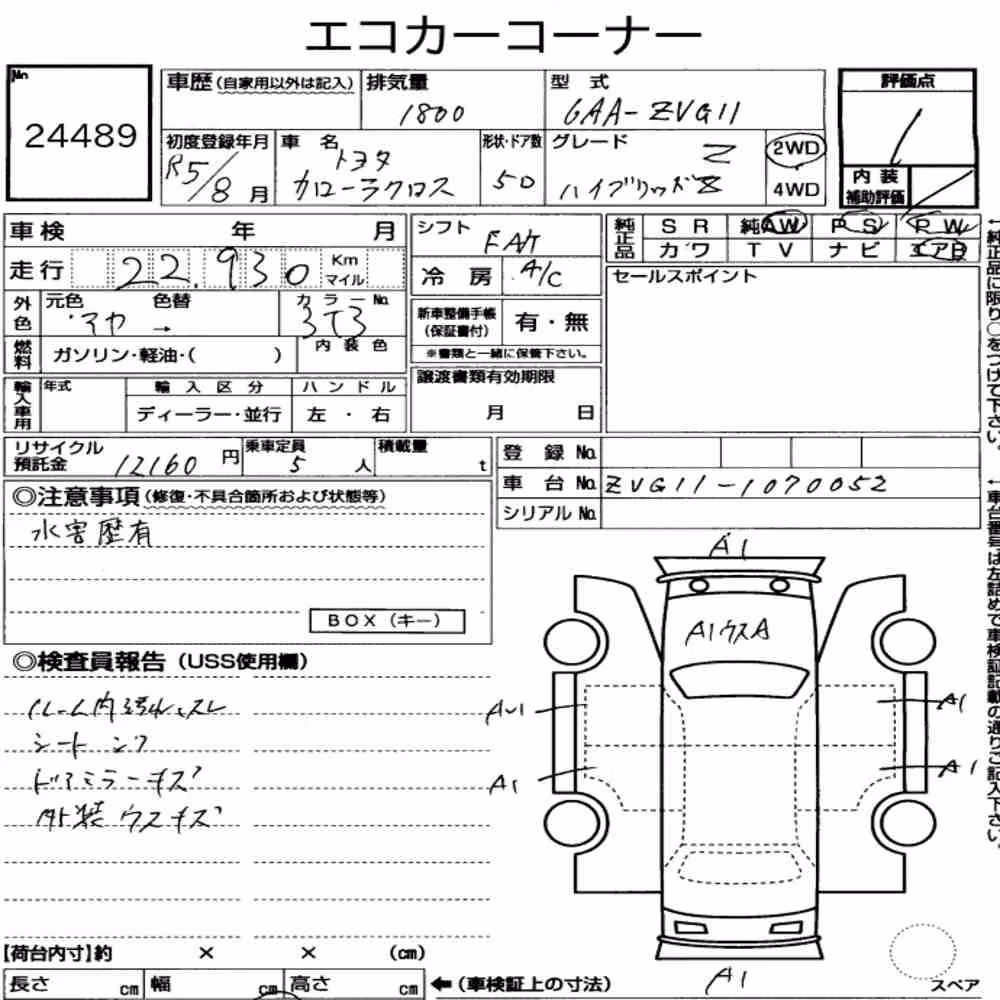 エコカーコーナー
No.
24489
車歴(自家用以外は記入)
排気量
1800
型式
6AA-ZVG11
評価点
初度登録年月
R5/8月
車名
トヨタ
カローラクロス
形状・ドア数
5D
グレード
Z
ハイブリッドZ
2WD
4WD
内装
補助評価
車検 年 月
走行 22.930 Km
マイル
シフト
FAT
冷房 A/C
純正品 SR 純AW PS PW
カワ TV ナビ エアB
セールスポイント
外色 元色 色替 カラーNo.
マヤ → 3T3
燃料 ガソリン・軽油・( ) 内装色
新車整備手帳
(保証書付) 有・無
※書類と一緒に保管下さい。
輸入車用 年式 輸入区分 ハンドル
ディーラー・並行 左・右
譲渡書類有効期限
月 日
リサイクル
預託金 12160円
乗車定員 5人
積載量 t
登録No.
車台No. ZVG11-1070052
シリアルNo.
◎注意事項(修復・不具合箇所および状態等)
水害歴有
BOX(キー)
◎検査員報告(USS使用欄)
ルーム内汚れ、スレ
シート シワ
ドアミラーキズ
外装ウスキズ
A1
A1ウスA
AU1
A1
A1
A1
A1
【荷台内寸】約 × × (cm)
長さ cm 幅 cm 高さ cm ←(車検証上の寸法)
スペア
←純正品に限り○をつけて下さい。
←車台番号は左詰めで車検証記載の通りご記入下さい。